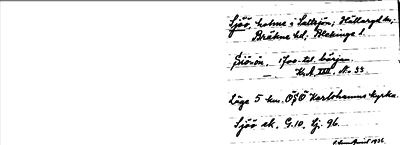 Sjöö, holme i Saltsjön; Hällaryd sn;
Bräkne hd; Blekinge l.
Siöön, 1700-tal. början
— K.A. XIII. N. 33
Läge 5 km. OSO Karlshamns kyrka.
Sjöö sk. G.10. Lj. 96.
1936